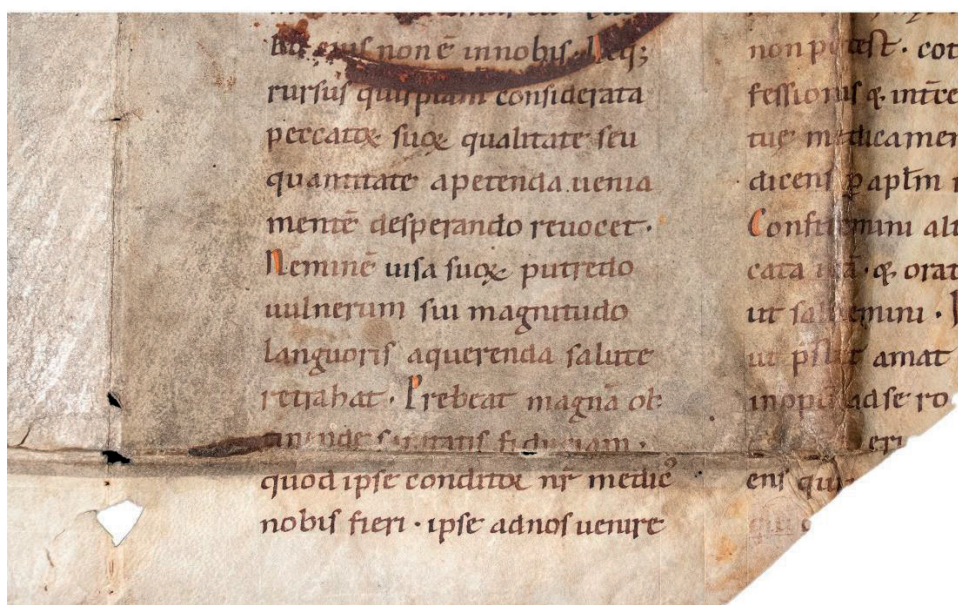 ba eiuſ non ē innobiſ · Neq;
rurſuſ quiſpiam conſiderata
peccatoꝝ ſuoꝝ qualitate ſeu
quantitate apetenda uenia
mentē deſperando reuocet ·
Neminē uiſa ſuoꝝ putredo
uulnerum ſui magnitudo
languoriſ aquerenda ſalute
retrahat · Prebeat magnā ob
tinende ſanitatiſ fiduciam ·
quod ipſe conditoꝛ nr̄ medicꝰ
nobiſ fieri · ipſe adnoſ uenire
non poteſt · cot
feſſioniſ q; int̄ce
tuę medicamen
dicenſ ꝑ apl̄m
Confitemini alt
cata ura · q; orat
ut ſaluemini ·
amat
adſe ro
eri
enſ qui